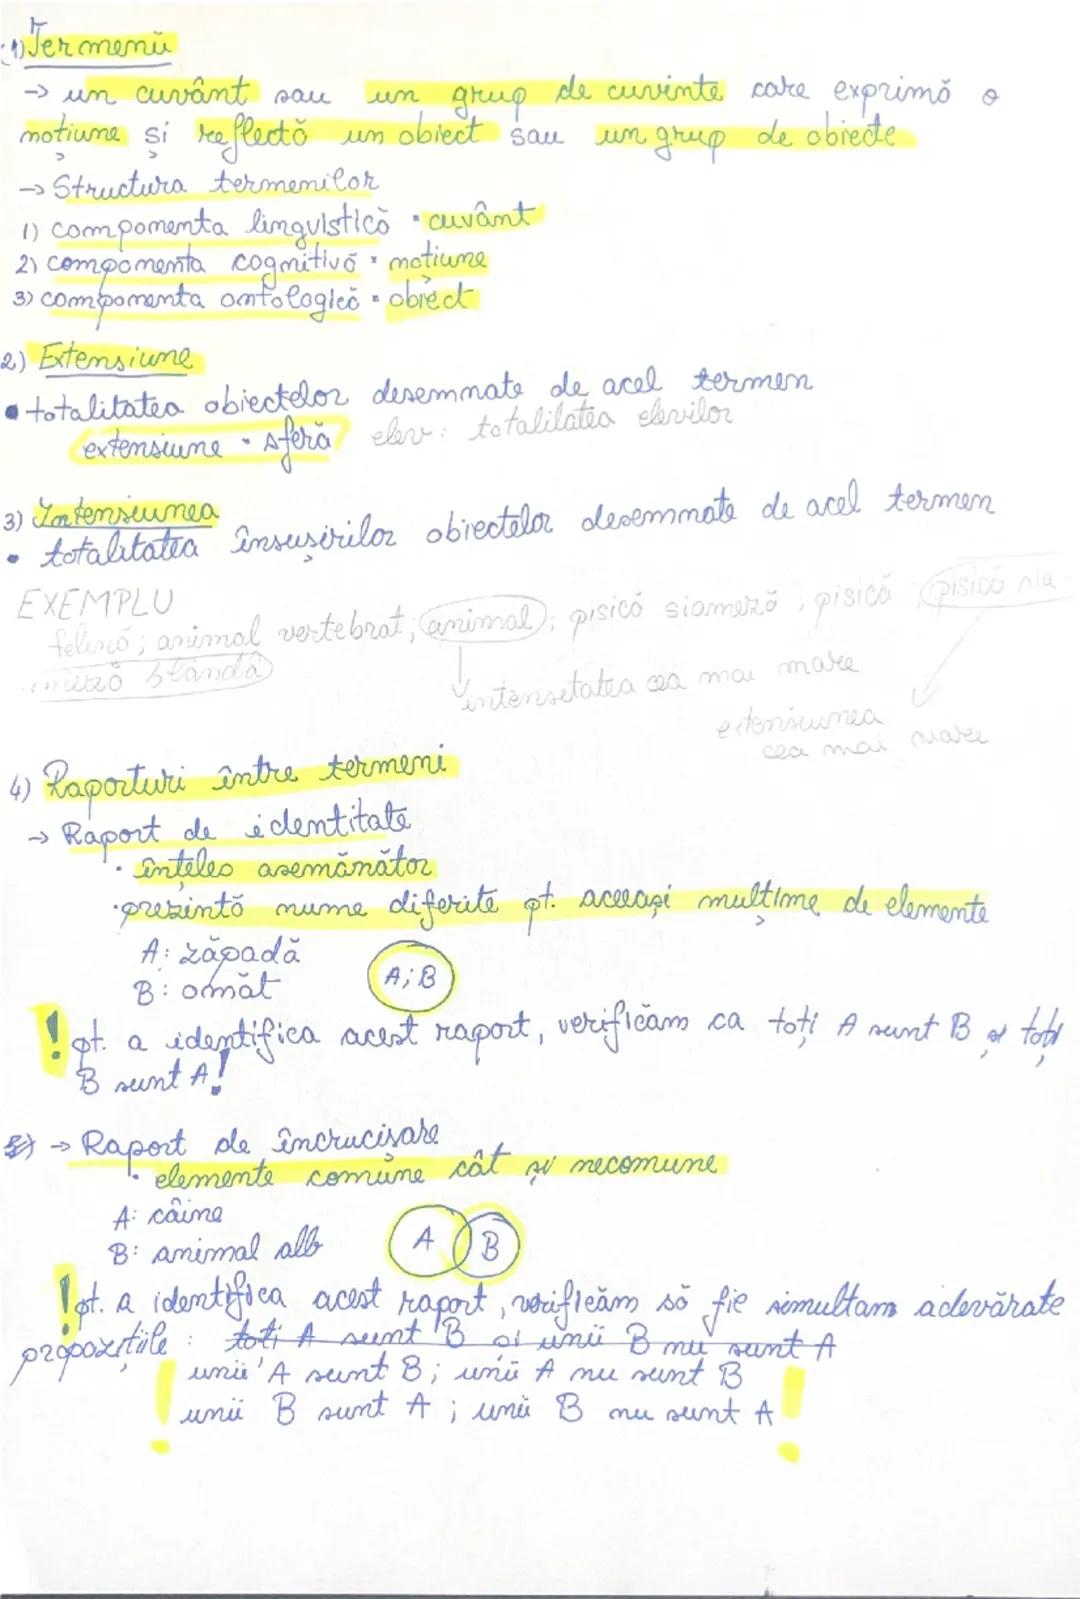 1) Termenii
→ un cuvânt sau un grup de cuvinte care exprimă o
noțiune și reflectă un obiect sau un grup de obiecte
→ Structura termenilor
1) componenta lingvistică • cuvânt
2) componenta cognitivă • noțiune
3) componenta ontologică • obiect
2) Extensiune
• totalitatea obiectelor desemnate de acel termen
extensiune • sferă elev: totalitatea elevilor
3) Intensiunea
• totalitatea însușirilor obiectelor desemnate de acel termen
EXEMPLU
felină; animal vertebrat; animal; pisică siameză; pisică; pisică sia-
meză blândă
intensitatea cea mai mare
extensiunea
cea mai mare
4) Raporturi între termeni
→ Raport de identitate
• înțeles asemănător
• prezintă nume diferite pt. aceeași mulțime de elemente
A: zăpadă
B: omăt
A; B
! pt. a identifica acest raport, verificăm ca toți A sunt B și toți
B sunt A!
→ Raport de încrucișare
• elemente comune cât și necomune
A: câine
B: animal alb
A B
! pt. a identifica acest raport, verificăm să fie simultam adevărate
propozițiile: toți A sunt B și unii B nu sunt A
! unii A sunt B; unii A nu sunt B
unii B sunt A; unii B nu sunt A !